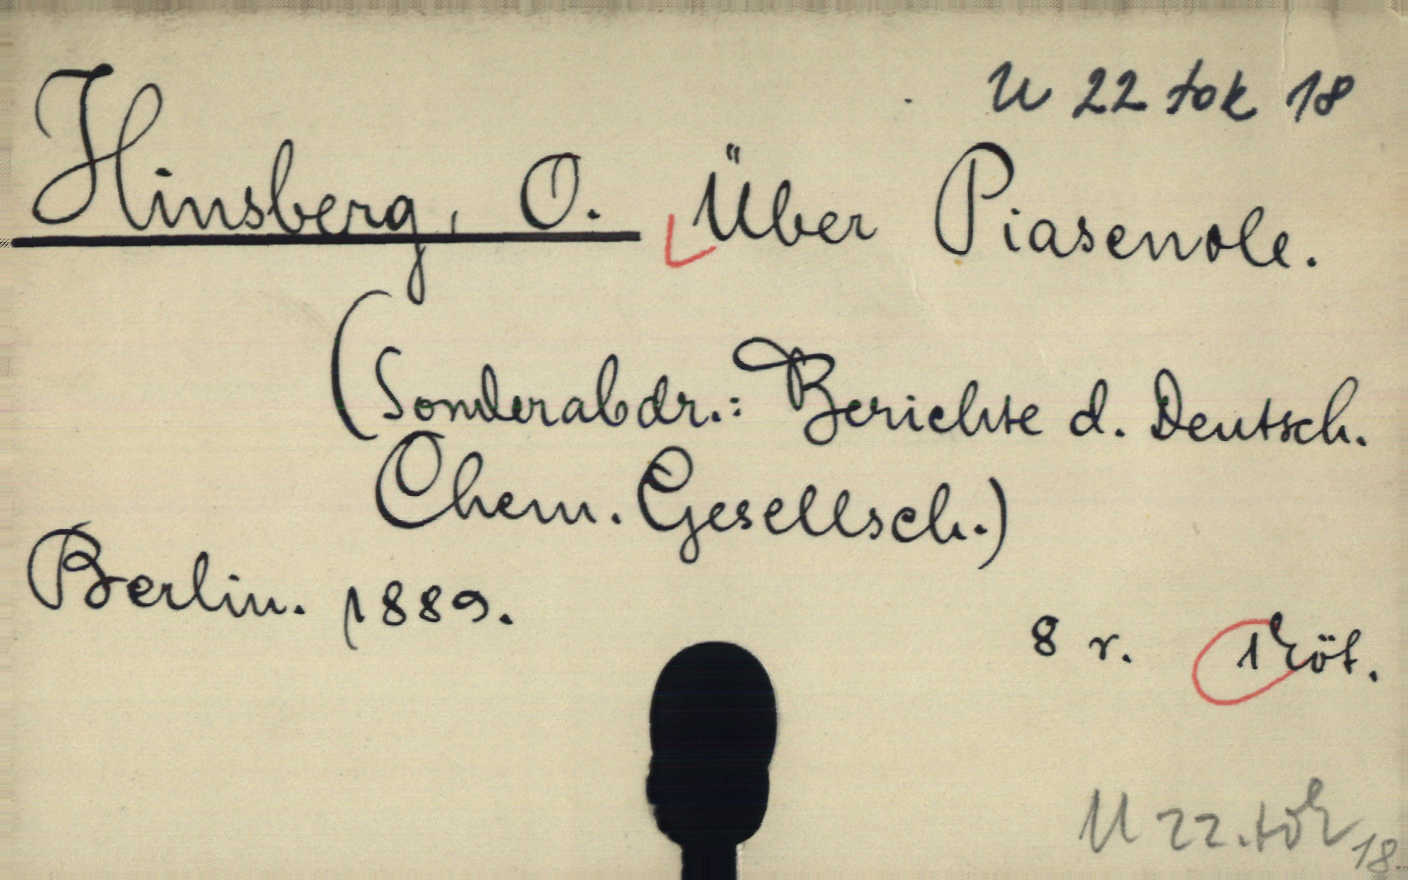 U 22 tok 18
Hinsberg, O. Über Piasenole.
(Sonderabdr.: Berichte d. Deutsch.
Chem. Gesellsch.)
Berlin. 1889.
8 r. 1 köt.
U 22. tok 18.